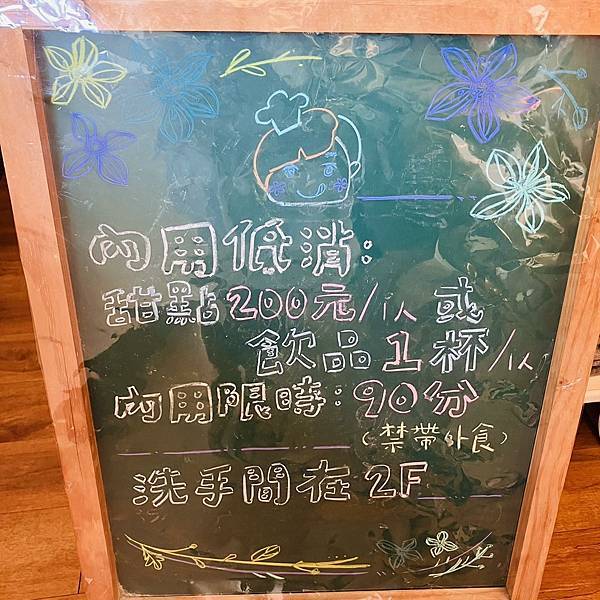 內用低消:
甜點200元/1人 或
飲品1杯/1人
內用限時:90分
(禁帶外食)
洗手間在2F